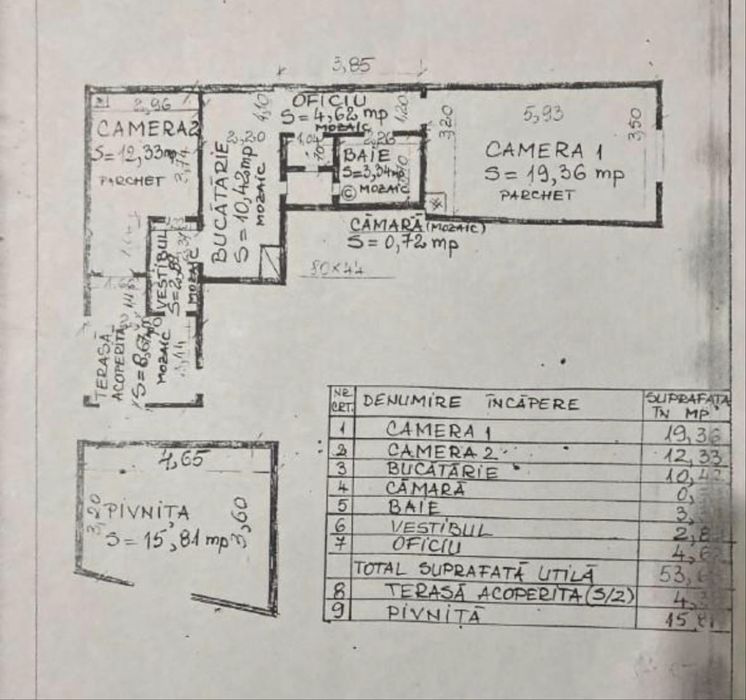 3,85
2,96
CAMERA 2
S=12,33mp
2,74
PARCHET
1,10
OFICIU
S=4,62 mp
MOZAIC
1,20
2,20
BUCĂTĂRIE
S=10,42mp
MOZAIC
2,26
BAIE
S=3,34mp
© MOZAIC
3,20
5,93
3,50
CAMERA 1
S=19,36 mp
PARCHET
CĂMARĂ (MOZAIC)
S=0,72 mp
80×44
VESTIBUL
MOZAIC
TERASĂ
ACOPERITĂ
S=8,67mp
MOZAIC
3,14
4,65
3,20
PIVNIȚA
S=15,81 mp
3,60
NR. CRT. DENUMIRE ÎNCĂPERE SUPRAFAȚA ÎN MP
1 CAMERA 1 19,36
2 CAMERA 2 12,33
3 BUCĂTĂRIE 10,42
4 CĂMARĂ 0,
5 BAIE 3,
6 VESTIBUL 2,8
7 OFICIU 4,62
TOTAL SUPRAFAȚĂ UTILĂ 53,6
8 TERASĂ ACOPERITA (S/2) 4,3
9 PIVNIȚĂ 15,81